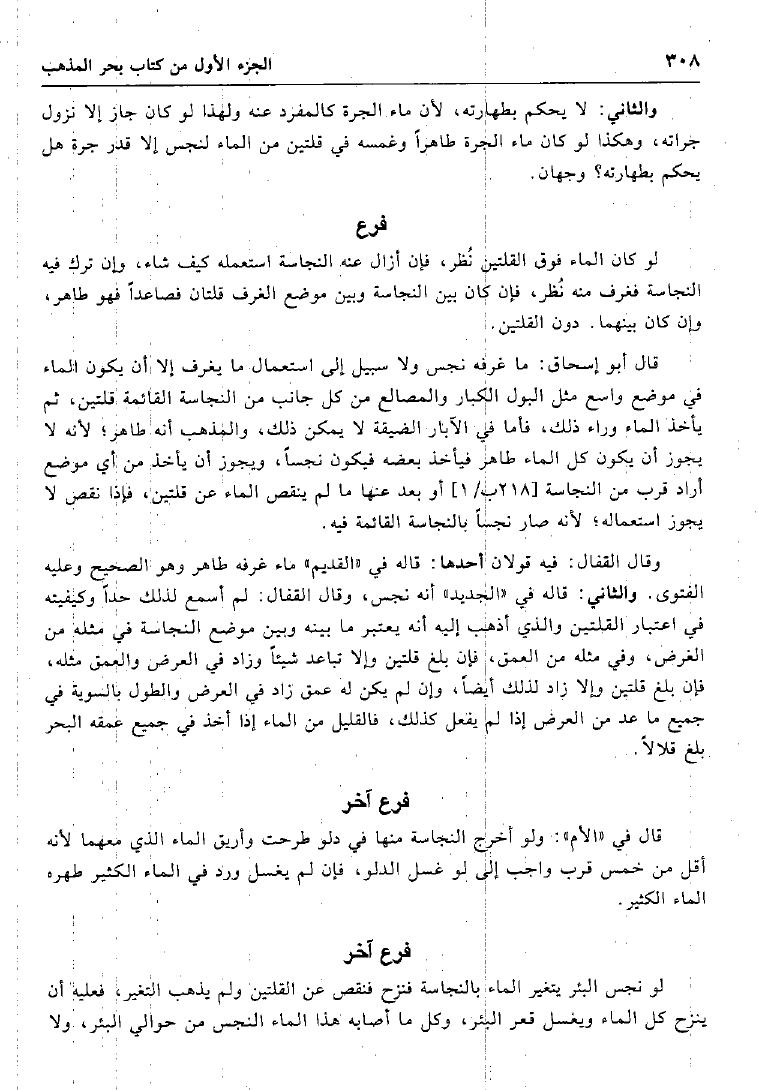 ٣٠٨ الجزء الأول من كتاب بحر المذهب
والثاني: لا يحكم بطهارته، لأن ماء الجرة كالمفرد عنه ولهذا لو كان جاز إلا نزول
جراته، وهكذا لو كان ماء الجرة طاهراً وغمسه في قلتين من الماء لنجس إلا قدر جرة هل
يحكم بطهارته؟ وجهان.
فرع
لو كان الماء فوق القلتين نُظر، فإن أزال عنه النجاسة استعمله كيف شاء، وإن ترك فيه
النجاسة فغرف منه نُظر، فإن كان بين النجاسة وبين موضع الغرف قلتان فصاعداً فهو طاهر،
وإن كان بينهما. دون القلتين.
قال أبو إسحاق: ما غرفه نجس ولا سبيل إلى استعمال ما يغرف إلا أن يكون الماء
في موضع واسع مثل البول الكبار والمصالع من كل جانب من النجاسة القائمة قلتين، ثم
يأخذ الماء وراء ذلك، فأما في الآبار الضيقة لا يمكن ذلك، والمذهب أنه طاهر؛ لأنه لا
يجوز أن يكون كل الماء طاهر فيأخذ بعضه فيكون نجساً، ويجوز أن يأخذ من أي موضع
أراد قرب من النجاسة [٢١٨ب/ ١] أو بعد عنها ما لم ينقص الماء عن قلتين، فإذا نقص لا
يجوز استعماله؛ لأنه صار نجساً بالنجاسة القائمة فيه.
وقال القفال: فيه قولان أحدها: قاله في «القديم» ماء غرفه طاهر وهو الصحيح وعليه
الفتوى. والثاني: قاله في «الجديد» أنه نجس، وقال القفال: لم أسمع لذلك حداً وكيفيته
في اعتبار القلتين والذي أذهب إليه أنه يعتبر ما بينه وبين موضع النجاسة في مثله من
الغرض، وفي مثله من العمق، فإن بلغ قلتين وإلا تباعد شيئاً وزاد في العرض والعمق مثله،
فإن بلغ قلتين وإلا زاد لذلك أيضاً، وإن لم يكن له عمق زاد في العرض والطول بالسوية في
جميع ما عد من العرض إذا لم يفعل كذلك، فالقليل من الماء إذا أخذ في جميع عمقه البحر
بلغ قلالاً.
فرع آخر
قال في «الأم»: ولو أخرج النجاسة منها في دلو طرحت وأريق الماء الذي معهما لأنه
أقل من خمس قرب واجب إلى لو غسل الدلو، فإن لم يغسل ورد في الماء الكثير طهره
الماء الكثير.
فرع آخر
لو نجس البئر يتغير الماء بالنجاسة فنزح فنقص عن القلتين ولم يذهب التغير، فعليه أن
ينزح كل الماء ويغسل قعر البئر، وكل ما أصابه هذا الماء النجس من حوالي البئر، ولا